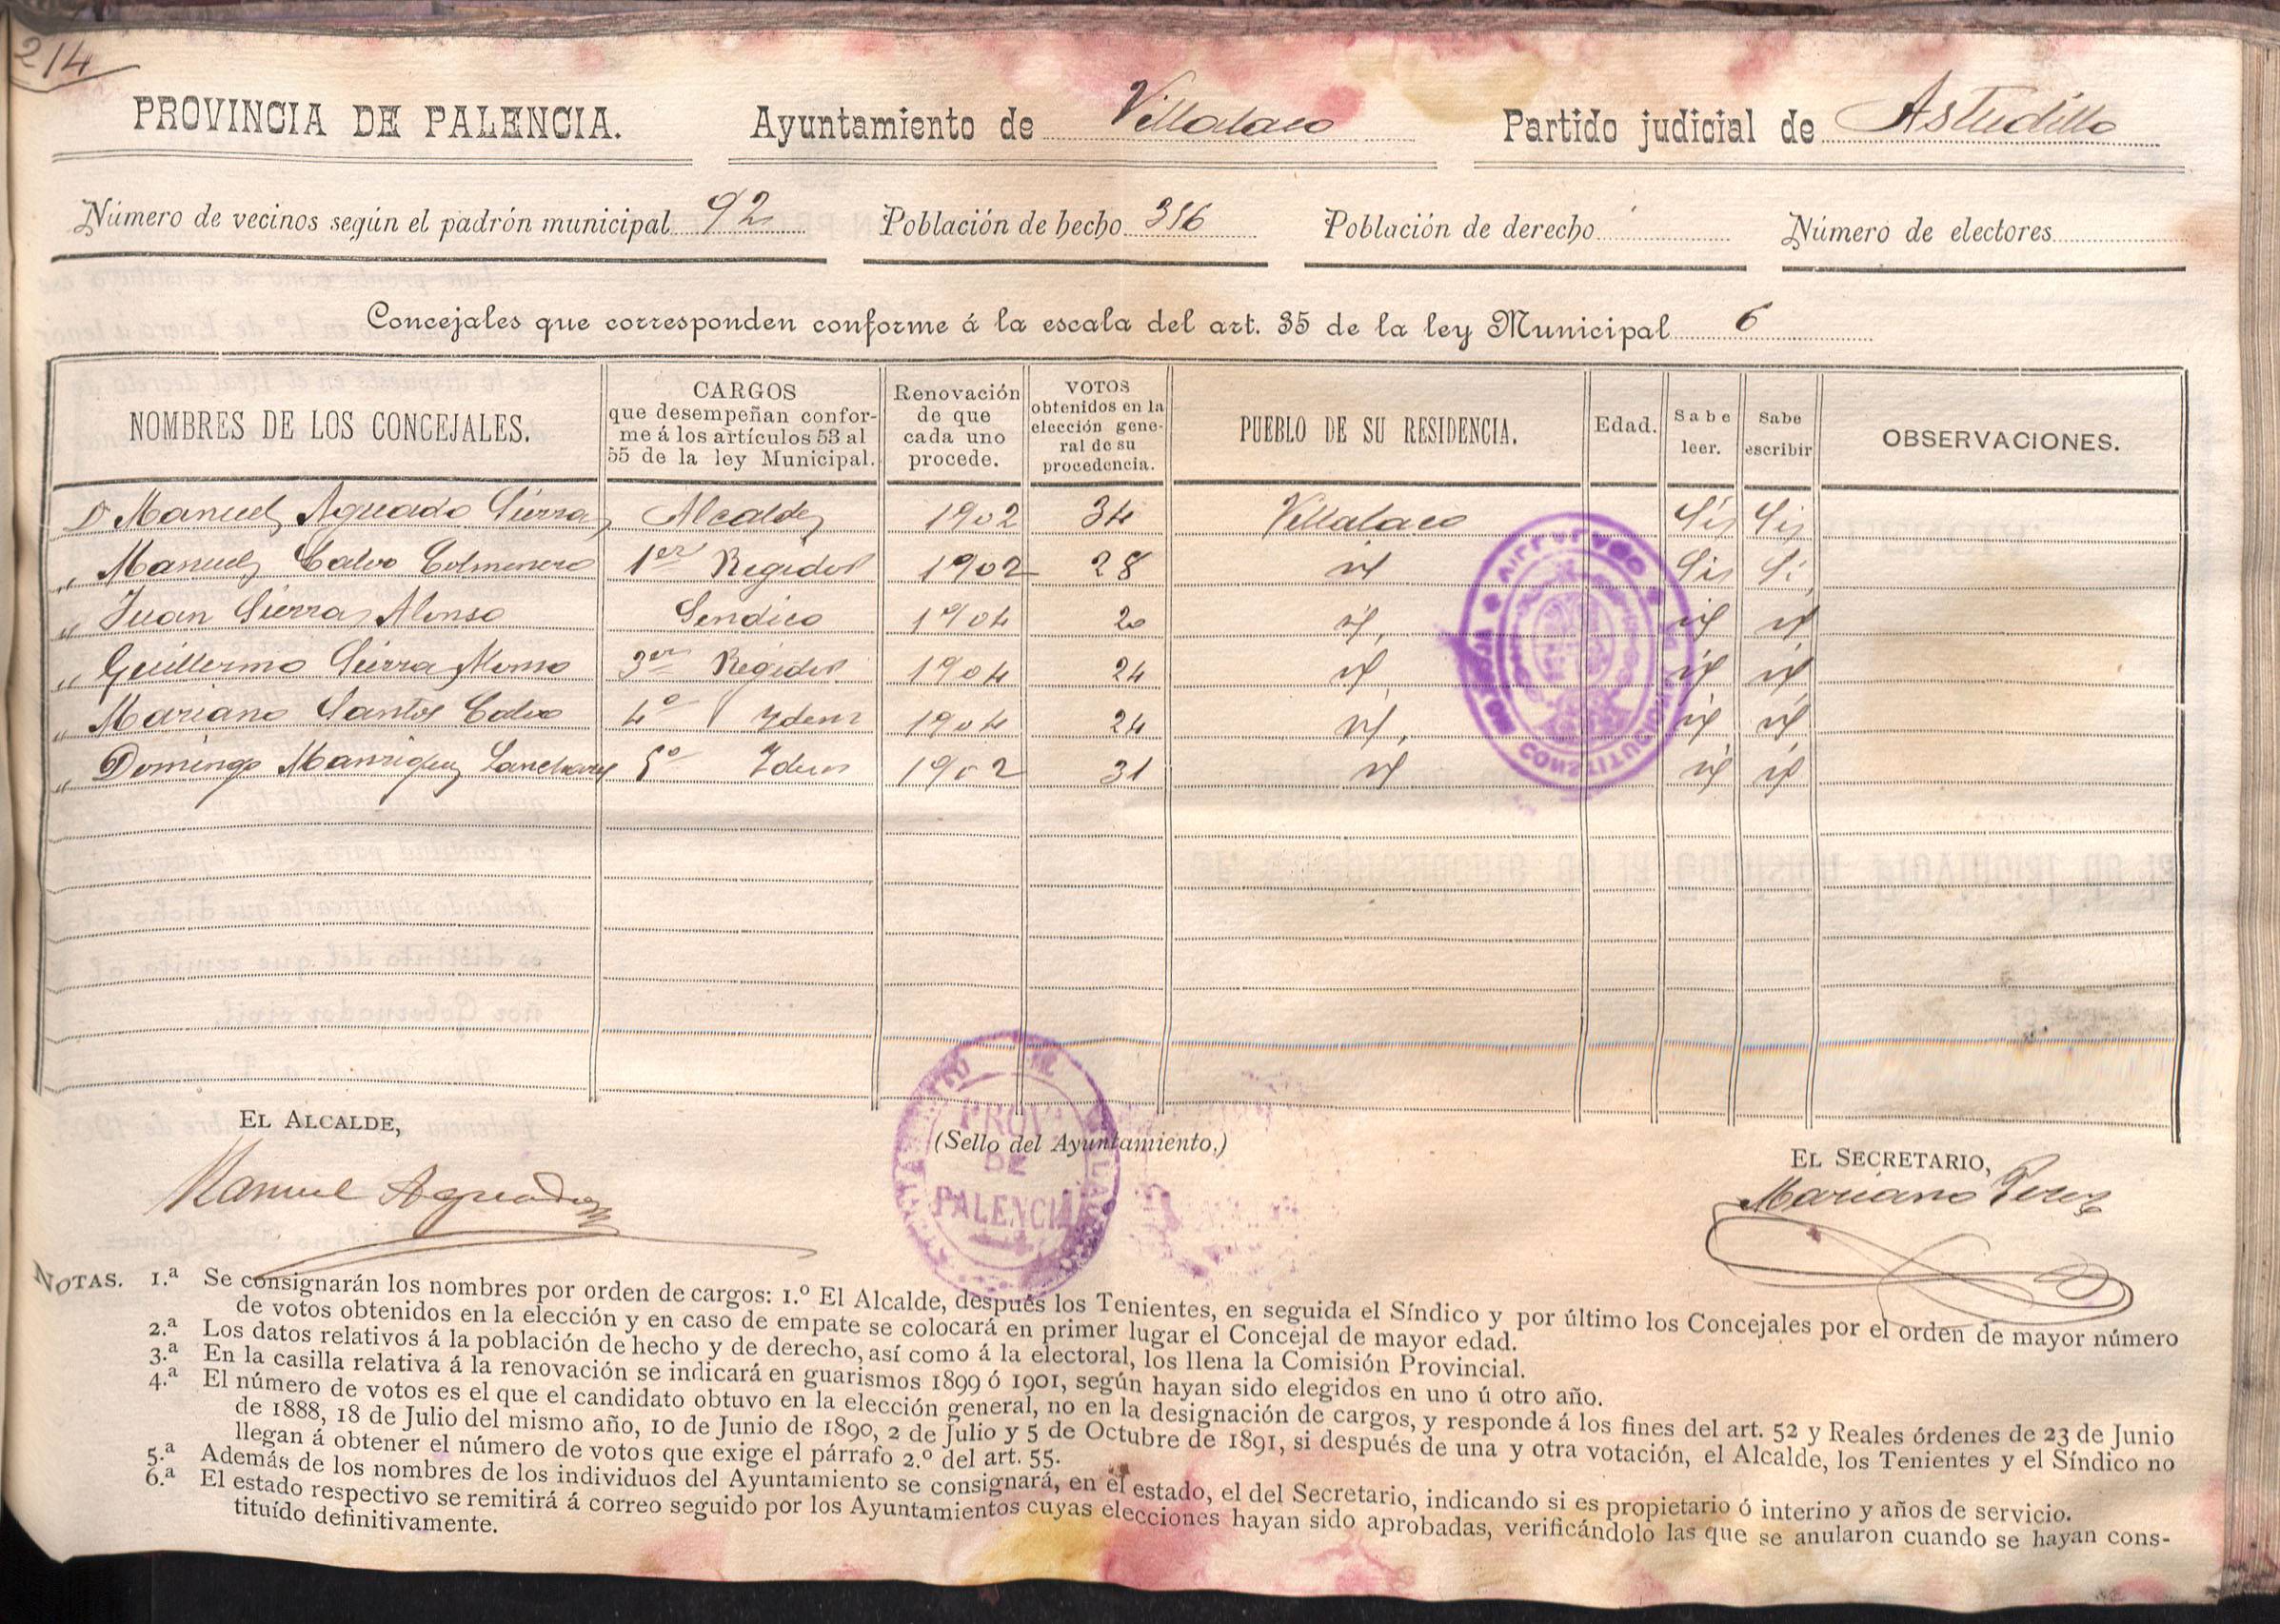 214
PROVINCIA DE PALENCIA. Ayuntamiento de Villalaco Partido judicial de Astudillo
Número de vecinos según el padrón municipal 92 Población de hecho 316 Población de derecho Número de electores
Concejales que corresponden conforme á la escala del art. 35 de la ley Municipal 6
NOMBRES DE LOS CONCEJALES. CARGOS que desempeñan conforme á los artículos 53 al 55 de la ley Municipal. Renovación de que cada uno procede. VOTOS obtenidos en la elección general de su procedencia. PUEBLO DE SU RESIDENCIA. Edad. Sabe leer. Sabe escribir OBSERVACIONES.
D Manuel Aguado Sierra Alcalde 1902 34 Villalaco Si Si
" Manuel Calvo Colmenero 1er Regidor 1902 28 id Si Si
" Juan Sierra Alonso Sendico 1904 20 id. id id
" Guillermo Sierra Alonso 3er Regidor 1904 24 id id id
" Mariano Santos Calvo 4º Idem 1904 24 id. id id
" Domingo Manrique 5º Idem 1902 31 id id id
CONSTITUCIONAL
EL ALCALDE, (Sello del Ayuntamiento.) EL SECRETARIO,
Manuel Aguado Mariano Perez
PROVA
DE
PALENCIA
NOTAS. 1.ª Se consignarán los nombres por orden de cargos: 1.º El Alcalde, después los Tenientes, en seguida el Síndico y por último los Concejales por el orden de mayor número
de votos obtenidos en la elección y en caso de empate se colocará en primer lugar el Concejal de mayor edad.
2.ª Los datos relativos á la población de hecho y de derecho, así como á la electoral, los llena la Comisión Provincial.
3.ª En la casilla relativa á la renovación se indicará en guarismos 1899 ó 1901, según hayan sido elegidos en uno ú otro año.
4.ª El número de votos es el que el candidato obtuvo en la elección general, no en la designación de cargos, y responde á los fines del art. 52 y Reales órdenes de 23 de Junio
de 1888, 18 de Julio del mismo año, 10 de Junio de 1890, 2 de Julio y 5 de Octubre de 1891, si después de una y otra votación, el Alcalde, los Tenientes y el Síndico no
llegan á obtener el número de votos que exige el párrafo 2.º del art. 55.
5.ª Además de los nombres de los individuos del Ayuntamiento se consignará, en el estado, el del Secretario, indicando si es propietario ó interino y años de servicio.
6.ª El estado respectivo se remitirá á correo seguido por los Ayuntamientos cuyas elecciones hayan sido aprobadas, verificándolo las que se anularon cuando se hayan cons-
tituído definitivamente.